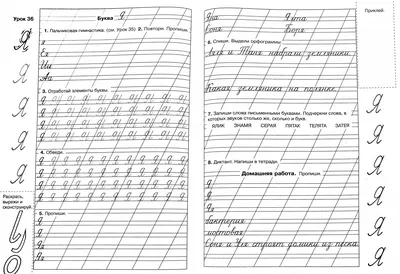 Урок 36
Буква Я
1. Пальчиковая гимнастика. (см. Урок 35) 2. Повтори. Пропиши.
Я
Ея
Ша
Аа
3. Отработай элементы буквы.
4. Обведи.
5. Пропиши.
Я
Я
Яя
Яя
Раскрась,
вырежи и
сконструируй.
Яна
Яхта
Соня
6. Спиши. Выдели орфограммы.
и Таня набрали земляники.
Какая земляника на полянке.
7. Запиши слова письменными буквами. Подчеркни слова, в
которых звуков столько же, сколько и букв.
ЯЛИК ЗНАМЯ СЕРАЯ ПЯТАК ТЕЛЯТА ЗАТЕЯ
8. Диктант. Напиши в тетради.
Домашняя работа. Пропиши.
Я
Я
Я
Я
бактерия
мостовая
Соня и Уля строят домики из песка.
Приклей.
Я
Я
Я
Я
Я
Я